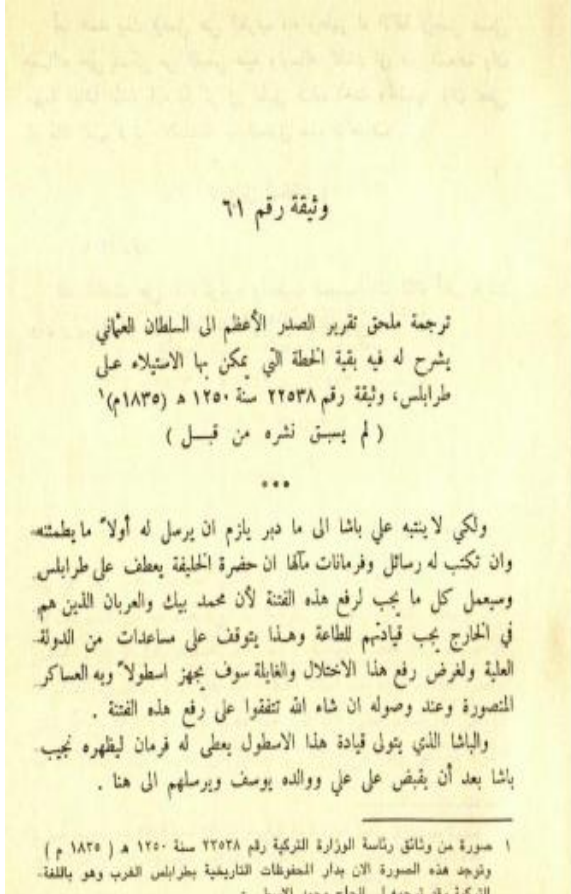 وثيقة رقم ٦١
ترجمة ملحق تقرير الصدر الأعظم الى السلطان العثماني
يشرح له فيه بقية الخطة التي يمكن بها الاستيلاء على
طرابلس، وثيقة رقم ٢٢٥٣٨ سنة ١٢٥٠ ه (١٨٣٥م)١
( لم يسبق نشره من قبل )
•••
ولكي لا ينتبه علي باشا الى ما دبر يلزم ان يرسل له أولاً ما يطمئنه
وان تكتب له رسائل وفرمانات مآلها ان حضرة الخليفة يعطف على طرابلس
وسيعمل كل ما يجب لرفع هذه الفتنة لأن محمد بيك والعربان الذين هم
في الخارج يجب قيادتهم للطاعة وهذا يتوقف على مساعدات من الدولة
العلية ولغرض رفع هذا الاختلال والغايلة سوف يجهز اسطولاً وبه العساكر
المنصورة وعند وصوله ان شاء الله تتفقوا على رفع هذه الفتنة .
والباشا الذي يتولى قيادة هذا الاسطول يعطى له فرمان ليظهره نجيب
باشا بعد أن يقبض على علي ووالده يوسف ويرسلهم الى هنا .
١ صورة من وثائق رئاسة الوزارة التركية رقم ٢٢٥٣٨ سنة ١٢٥٠ ه ( ١٨٣٥ م )
وتوجد هذه الصورة الان بدار المحفوظات التاريخية بطرابلس الغرب وهو باللغة